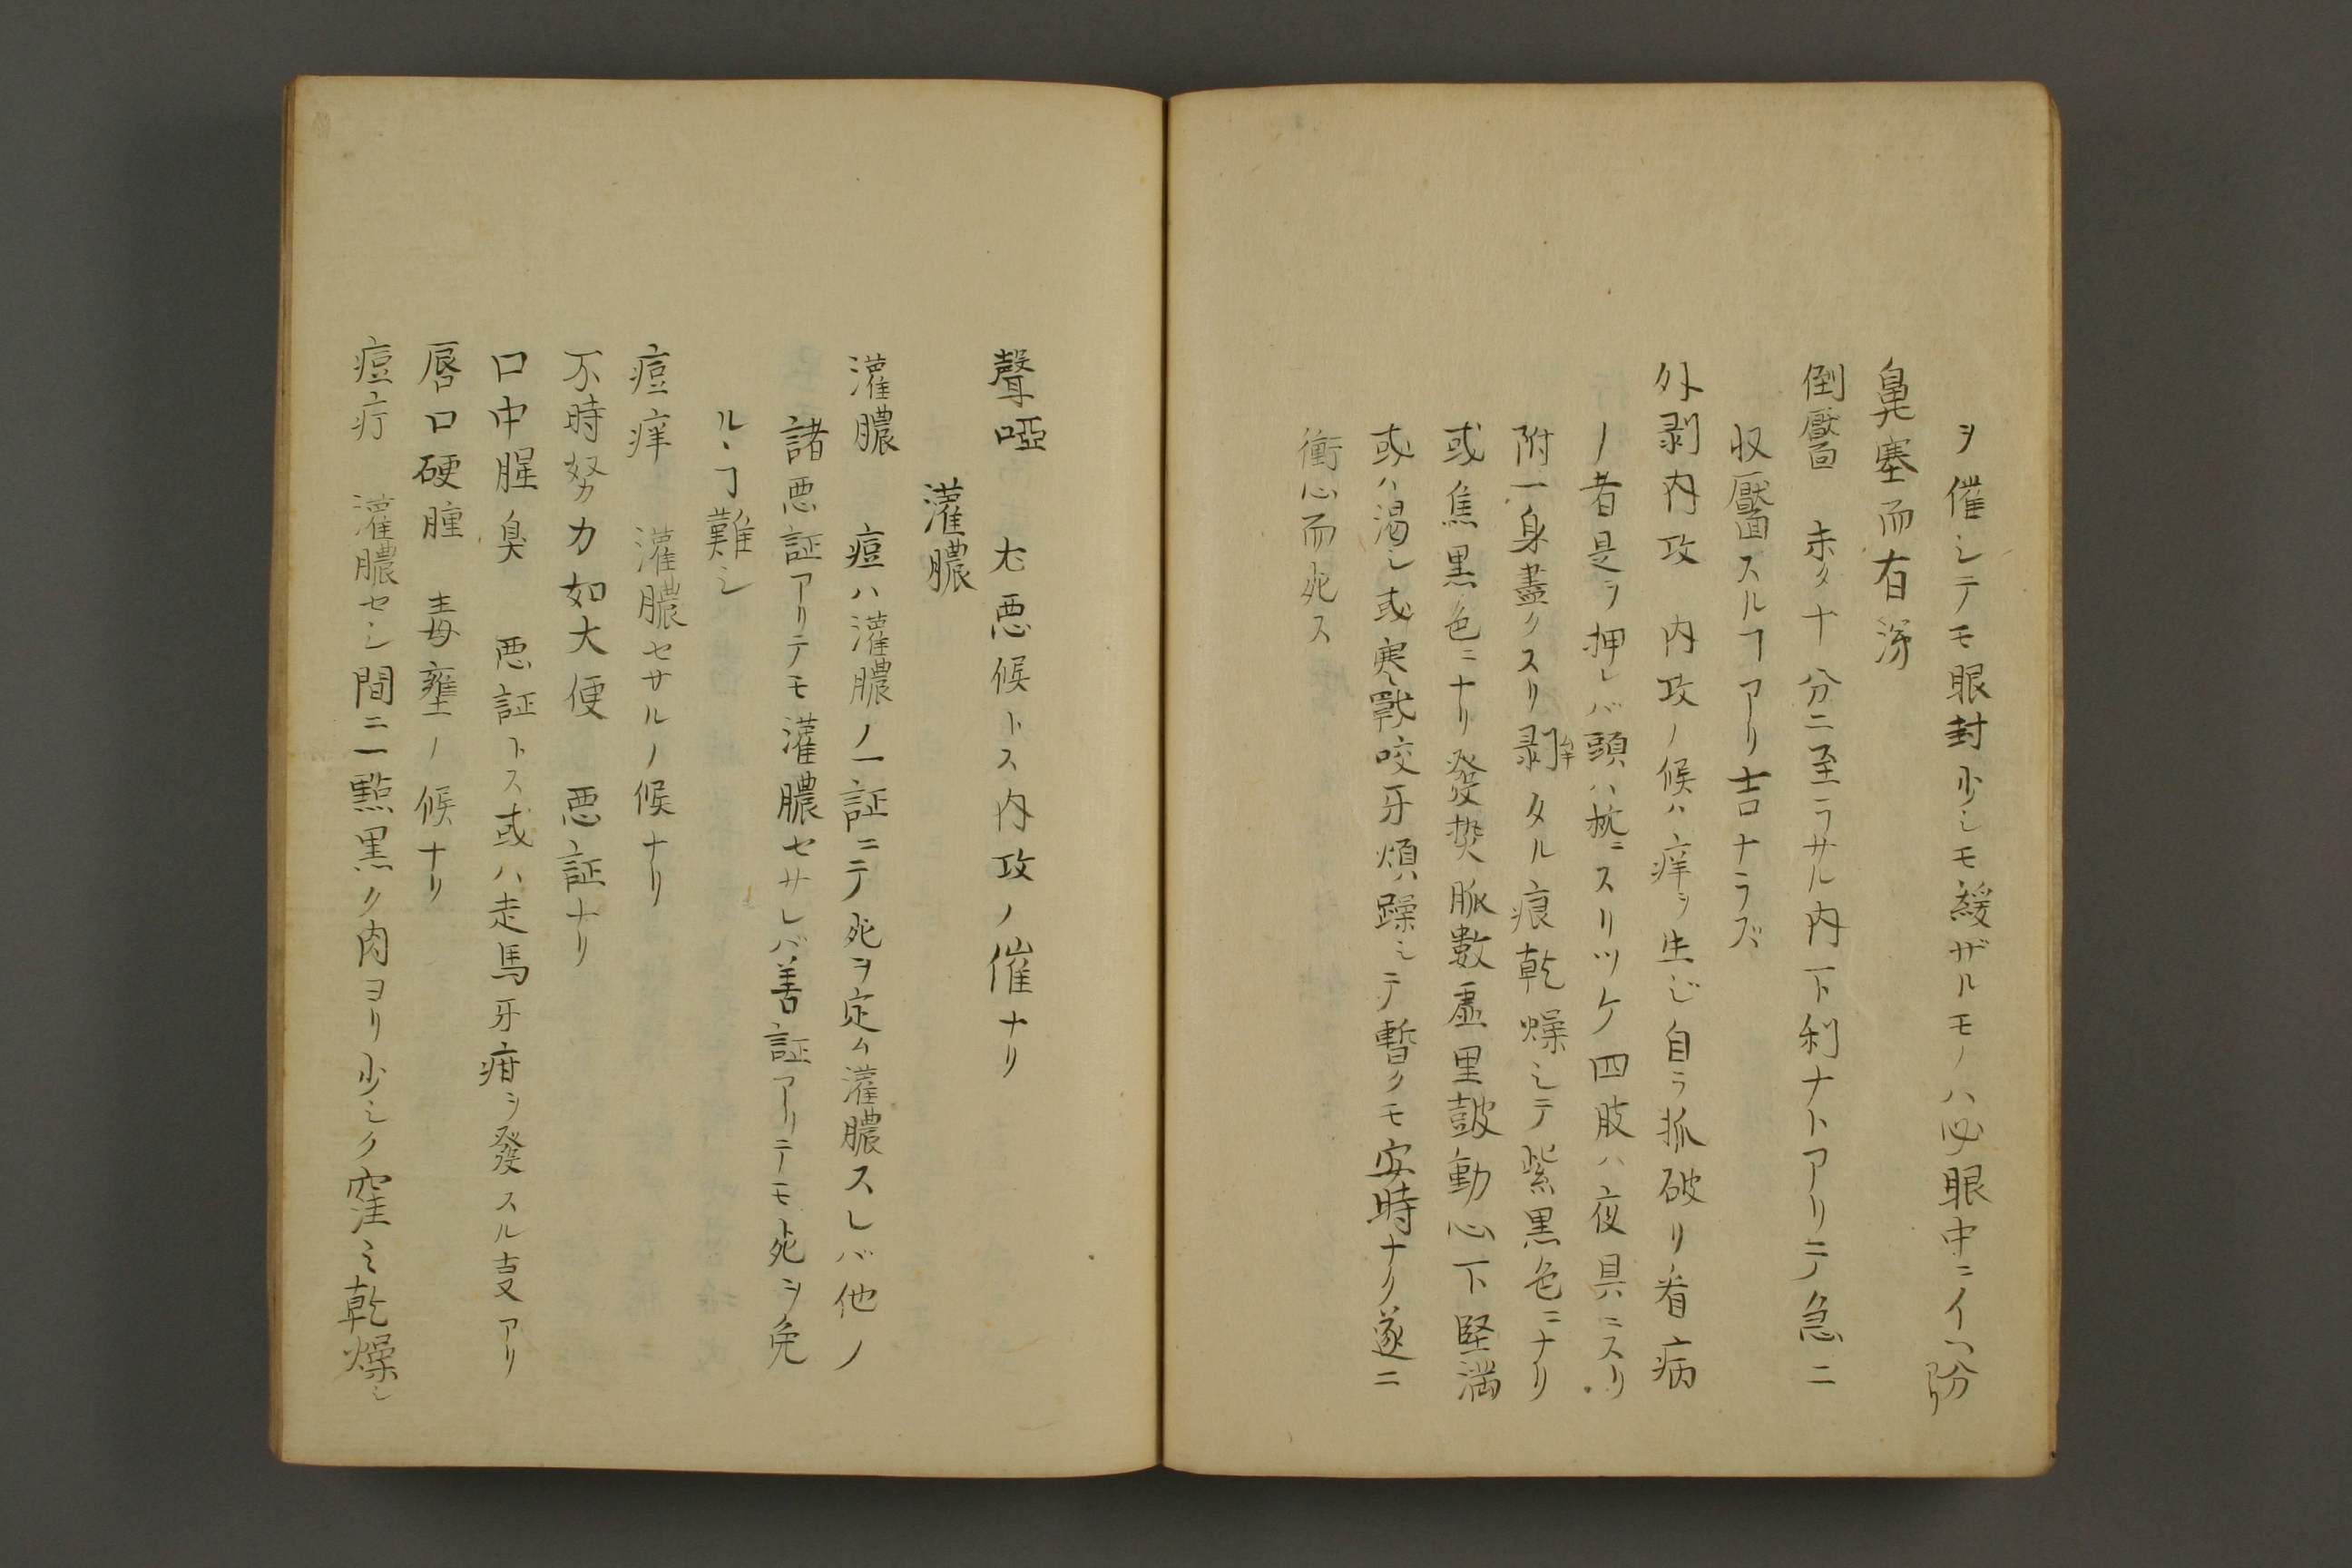 ヲ催シテモ眼封少シモ緩ザルモノハ必眼中ニイ
鼻塞而有涕
倒靨　未タ十分ニ至ラサル内下利ナトアリテ急ニ
収靨スルヿアリ吉ナラズ
外剥内攻　内攻ノ候ハ痒ヲ生ジ自ラ抓破リ看病
ノ者是ヲ押レバ頭ハ枕ニスリツケ四肢ハ夜具ニスリ
附一身盡クスリ剥タル痕乾燥シテ紫黒色ニナリ
或焦黒色ニナリ發熱脈數虚里皷動心下堅満
或ハ渇シ或寒戰咬牙煩躁シテ暫クモ安時ナク遂ニ
衝心而死ス
聲啞　尤悪候トス内攻ノ催ナリ
灌膿
灌膿　痘ハ灌膿ノ一証ニテ死ヲ定ム灌膿スレバ他ノ
諸悪証アリテモ灌膿セサレバ善証アリテモ死ヲ免
ルヽヿ難シ
痘痒　灌膿セサルノ候ナリ
不時努力如大便　悪証ナリ
口中腥臭　悪証トス或ハ走馬牙疳ヲ發スル叓アリ
唇口硬腫　毒壅ノ候ナリ
痘疔　灌膿セシ間ニ一點黒ク肉ヨリ少シク窪ミ乾燥シ